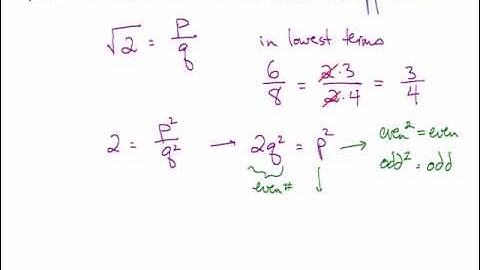 √2 = p/q in lowest terms
6/8 = 2·3/2·4 = 3/4
2 = p²/q² → 2q² = p² → even² = even
odd² = odd
even #